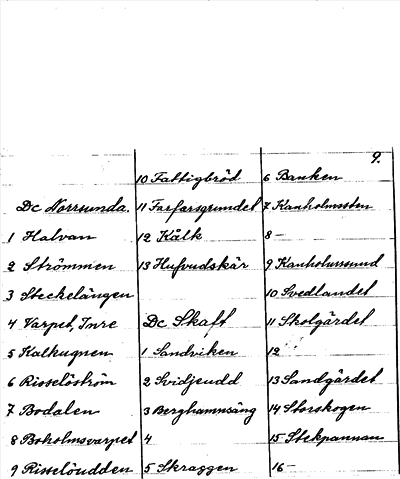 9.
Dc Norrsunda.
1 Halvan
2 Strömmen
3 Steckelängen
4 Varpet, Inre
5 Kalkugnen
6 Risselöström
7 Bodalen
8 Boholmsvarpet
9 Risselöudden
10 Fattigbröd
11 Farfarsgrundet
12 Kålk
13 Hufvudskär
Dc Skaft
1 Sandviken
2 Svidjeudd
3 Berghamnsäng
4
5 Skraggen
6 Banken
7 Kanholmssten
8 —
9 Kanholmssund
10 Svedlandet
11 Skolgärdet
12
13 Sandgärdet
14 Storskogen
15 Stekpannan
16 —